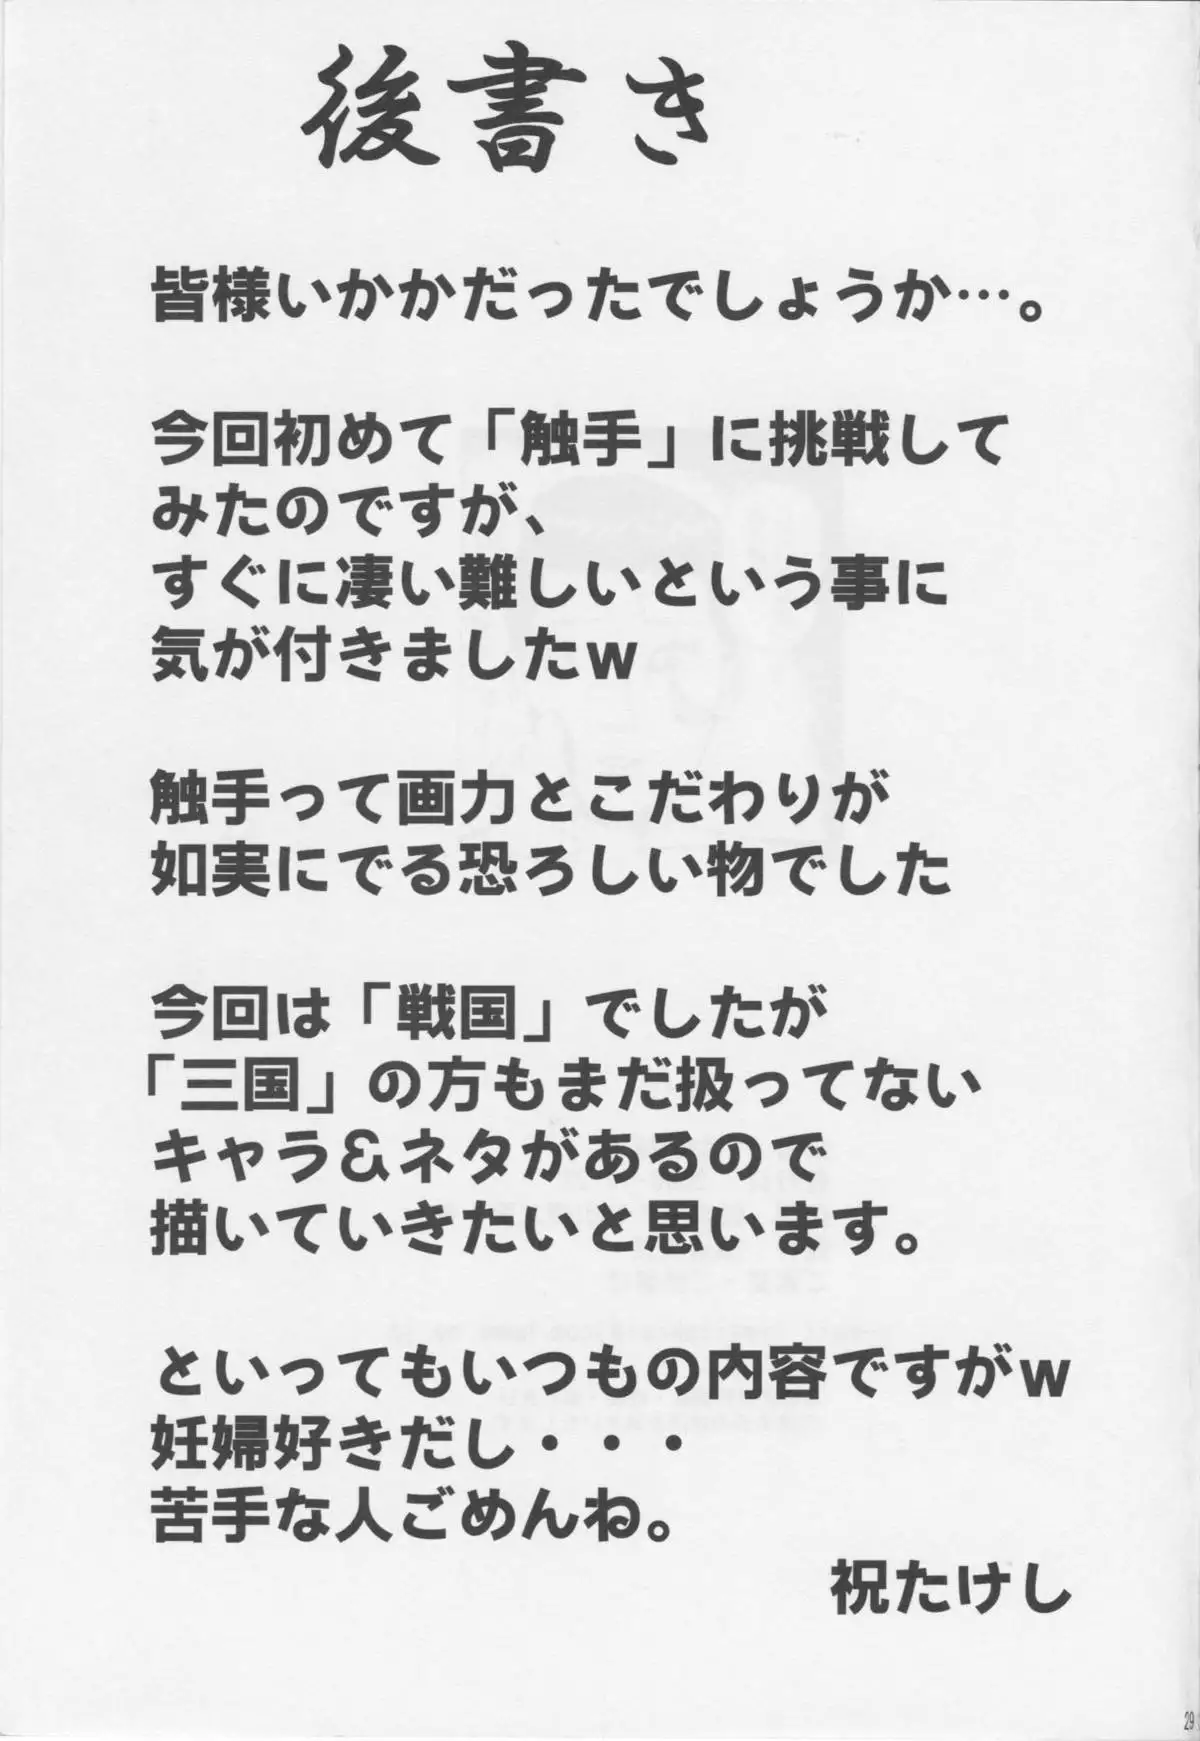 後書き
皆様いかかだったでしょうか…。
今回初めて「触手」に挑戦して
みたのですが、
すぐに凄い難しいという事に
気が付きましたw
触手って画力とこだわりが
如実にでる恐ろしい物でした
今回は「戦国」でしたが
「三国」の方もまだ扱ってない
キャラ&ネタがあるので
描いていきたいと思います。
といってもいつもの内容ですがw
妊婦好きだし・・・
苦手な人ごめんね。
祝たけし
29